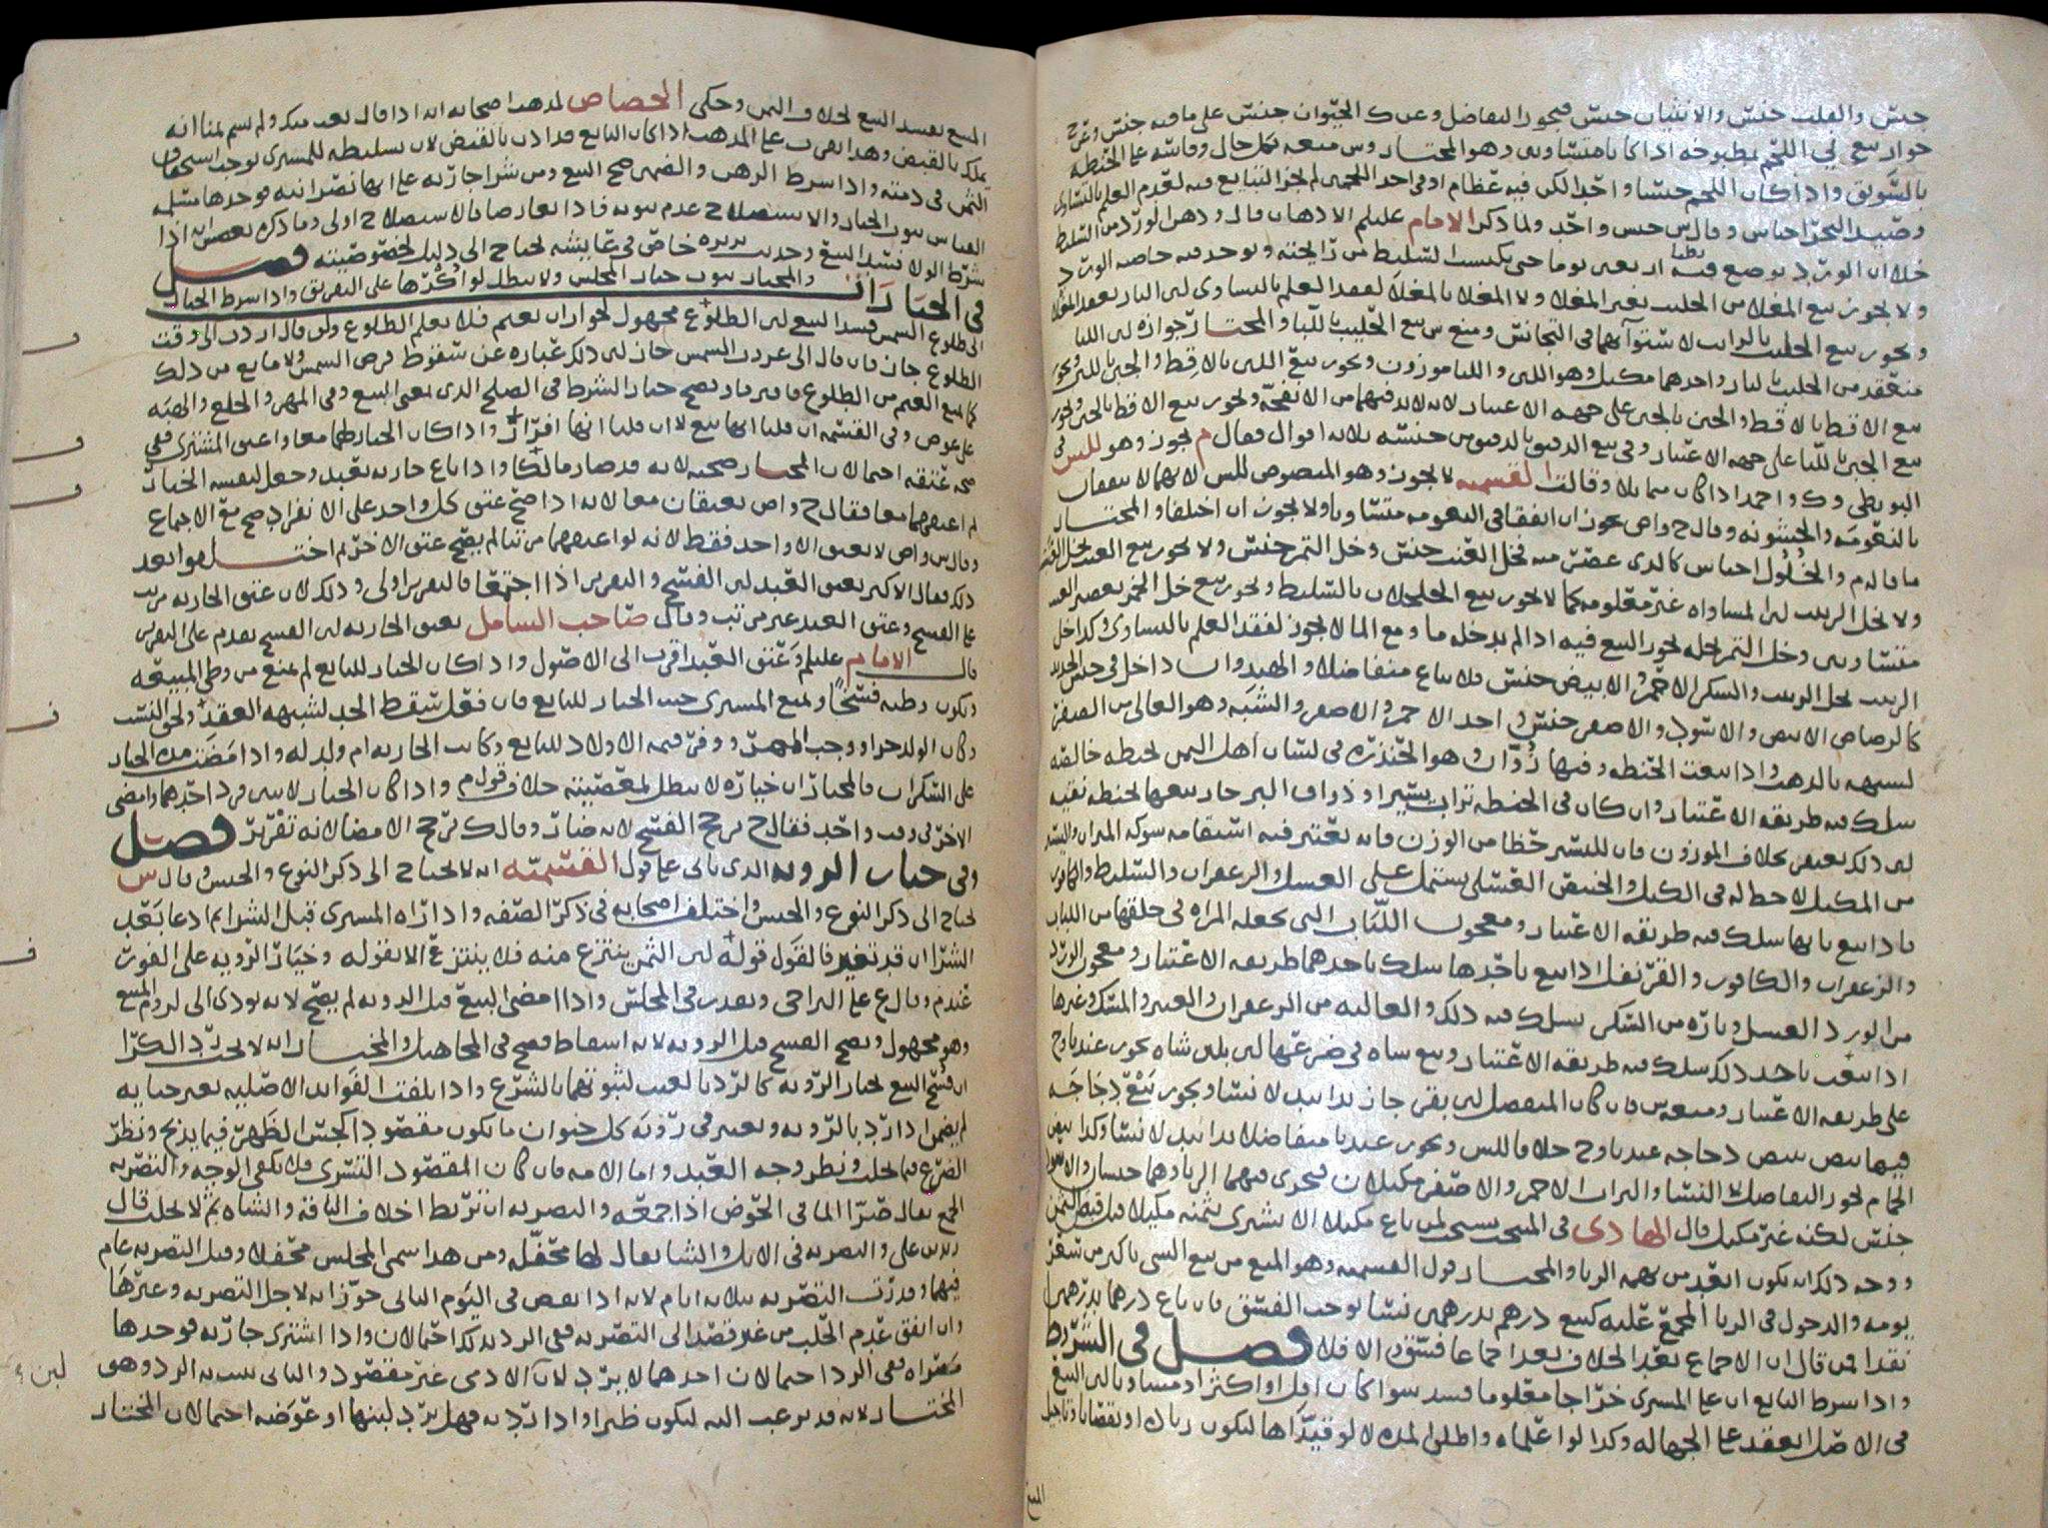 جنس والقلب جنس والانثيان جنس فيجوز التفاضل وعن ك الحيوان جنس على ما فيه جنس وعن ح
جواز بيع اللحم بمطبوخه اذا كانا متساويين وهو المختار وس منعه بكل حال وقاسه على الحنطه
بالسويق واذا كان اللحم جنسا واحدا لكن فيه عظام او في احد اللحمين لم يجز التبايع فيه لعدم العلم بالتساوي
وصيد البحر اجناس وقال س جنس واحد ولما ذكر الامام عليلم الادهان قال ودهن الورد من السليط
خلا ان الورد يوضع فيه اربعين يوما حتى يكتسب السليط من رايحته ويوجد فيه خاصه الورد
ولا يجوز بيع المغلا من الحليب بغير المغلا ولا المغلا بالمغلا لفقد العلم بالتساوي لان النار تعقد المغلا
ويجوز بيع الحليب بالرايب لاستوآيهما في التجانس ومنع س بيع الحليب باللبا والمختار جوازه لان اللبا
منعقد من الحليب بالنار واحدهما مكيل وهو اللبن واللبا موزون ويجوز بيع اللبن بالاقط والجبن باللبن ويجوز
بيع الاقط بالاقط والجبن بالجبن على جهه الاعتبار لانه لابد فيهما من الانفحه ويجوز بيع الاقط بالجبن ويجوز
بيع الجبن باللبا على جهه الاعتبار وفي بيع الدقيق بالدقيق من جنسه ثلاثه اقوال فقال م يجوز وهو للس في
البويطي وك واحمد اذا كان مما يلا وقالت القسميه لا يجوز وهو المنصوص للس لانهما لا يتفقان
بالنعومه والخشونه وقال ح واص يجوز ان اتفقا في النعومه متساويا ولا يجوز ان اختلفا والمختار
ما قاله م والخلول اجناس كالذي عصرت منه فخل العنب جنس وخل التمر جنس ولا يجوز بيع العنب بخل العنب
ولا بخل الزبيب لان المساواه غير معلومه كما لا يجوز بيع الجلجلان بالسليط ويجوز بيع خل الخمر بعصير العنب
متساويين وخل التمر بخله يجوز البيع فيه اذا لم يدخله ما ومع الما لا يجوز لفقد العلم بالتساوي وكذا خل
الزبيب بخل الزبيب والسكر الاحمر والابيض جنس فلا يباع متفاضلا والهندوان داخل في جنس الحديد
كالرصاص الابيض والاسود والاصفر جنس واحد الاحمر والاصفر والشبه وهو العالي من الصفر
لشبهه بالذهب واذا بيعت الحنطه وفيها زوان وهو الخنذره في لسان اهل اليمن بحنطه خالصه
سلك فيه طريقه الاعتبار وان كان في الحنطه تراب يسير او ذراق البر جاز بيعها بحنطه نقيه
لان ذلك يعفى بخلاف الموزون فان لليسير حظا من الوزن فانه يعتبر فيه استقامه شوكه الميزان واليسير
من المكيل لا حظ له في الكيل والخبيص العسلي يشتمل على العسل والزعفران والسليط والكافور
فاذا بيع بايها سلك فيه طريقه الاعتبار ومعجون اللباب التي تجعله المراه في حلقها من اللباب
والزعفران والكافور والقرنفل اذا بيع باحدها سلك باحدهما طريقه الاعتبار ومعجون الورد
من الورد العسل وتاره من السكر يسلك فيه ذلك والغاليه من الزعفران والعنبر والمسك وغيرها
اذا بيعت باحد ذلك سلك فيه طريقه الاعتبار وبيع شاه في ضرعها لبن بلبن شاه يجوز عندنا وح
على طريقه الاعتبار ومنعه س فان كان المنفصل لبن بقر جاز يدا بيد لا نسا ويجوز بيع دجاجه
فيها بيض ببيض دجاجه عندنا وح خلافا للس ويجوز عندنا متفاضلا يدا بيد لا نسا وكذا بيض
الحمام يجوز التفاضل لا النسا والتراب الاحمر والاصفر مكيلان فيجري فيهما الربا وهما جنسان والاسود
جنس لكنه غير مكيل قال الهادي في المنتخب يستحب لمن باع مكيلا الا يشتري بثمنه مكيلا قبل قبض الثمن
ووجه ذلك انه يكون ابعد من تهمه الربا والمختار قول القسميه وهو المنع من بيع الشي باكثر من سعر
يومه والدخول في الربا المجمع عليه كبيع درهم بدرهمين نسا يوجب الفسق فان باع درهما بدرهمين
نقدا فمن قال ان الاجماع بعد الخلاف يعد اجماعا فسق والا فلا فصل في الشروط
واذا شرط البايع ان على المشتري خراجا معلوما فسد سوا كان اقل او اكثر او مساويا لان البيع
في الاصل انعقد على الجهاله وكذا لو اعلماه واطلق المده لا لو قيداها ليكون زياده او نقصانا وتاجيل
المبيع
المبيع يفسد البيع بخلاف الثمن وحكى الجصاص لمذهب اصحابه انه اذا قال بعت منك ولم يسم ثمنا انه
يملك بالقبض وهذا يقرب على المذهب اذا كان البايع قد اذن بالقبض لان تسليطه للمشتري يوجب استحقاق
الثمن في ذمته واذا شرط الرهن والضمين صح البيع ومن شرا جاريه على انها نصرانيه فوجدها مسلمه
القياس ثبوت الخيار والاستصلاح عدم ثبوته فاذا تعارضا فالاستصلاح اولى وما ذكره بعضهم انه اذا
شرط الولا فسد البيع وحديث بريره خاص في عايشه يحتاج الى دليل لخصوصيته فصل
في الخيارات والمختار ثبوت خيار المجلس ولا يبطل لو اكرها على التفريق واذا شرط الخيار
الى طلوع الشمس فسد البيع لان الطلوع مجهول لجواز ان يغيم فلا يعلم الطلوع ولو قال اردت الى وقت
الطلوع جاز فان قال الى غروب الشمس جاز لان ذلك عباره عن سقوط قرص الشمس ولا مانع من ذلك
كما يمنع الغيم من الطلوع فافترقا ويصح خيار الشرط في الصلح الذي بمعنى البيع وفي المهر والخلع والهبه
على عوض وفي القسمه ان قلنا انها بيع لا ان قلنا انها افراز واذا كان الخيار لهما معا واعتق المشتري ففي
صحه عتقه احتمالان المختار صحته لانه قد صار مالكا واذا باع جاريه بعبد وجعل لنفسه الخيار
ثم اعتقهما معا فقال ح واص يعتقان معا لانه اذا صح عتق كل واحد على الانفراد صح مع الاجماع
وقال س واص لا يعتق الا واحد فقط لانه لو اعتقهما مرتبا لم يصح عتق الاخر ثم اختلفوا بعد
ذلك فقال الاكثر يعتق العبد لان الفسخ والتقرير اذا اجتمعا فالتقرير اولى وذلك لان عتق الجاريه مرتب
على الفسخ وعتق العبد غير مرتب وقال صاحب الشامل يعتق الجاريه لان الفسخ يقدم على التقرير
قال الامام عليلم وعتق العبد اقرب الى الاصول واذا كان الخيار للبايع لم يمنع من وطي المبيعه
ويكون وطيه فسخا ويمنع المشتري حيث الخيار للبايع فان فعل سقط الحد لشبهه العقد ولحق النسب
وكان الولد حرا ووجب المهر ووفر قيمه الاولاد للبايع وكانت الجاريه ام ولد له واذا مضت مده الخيار
على السكران فالمختار ان خياره لا يبطل لمعصيته خلاف قول م واذا كان الخيار لاثنين فرد احدهما وامضى
الاخر في وقت واحد فقال ح يرجح الفسخ لانه خيار وقال ك يرجح الامضا لانه تقرير فصل
وفي خيار الرويه الذي ياتي على قول القسميه انه لا يحتاج الى ذكر النوع والجنس وقال س
يحتاج الى ذكر النوع والجنس واختلف اصحابه في ذكر الصفه واذا راه المشتري قبل الشرا ثم ادعا بعد
الشرا ان قد تغير فالقول قوله لان الثمن ينتزع منه فلا ينتزع الا بقوله وخيار الرويه على الفور
عندم وقال ع على التراخي ويقدر في المجلس واذا امضى البيع قبل الرويه لم يصح لانه يودي الى لزوم المبيع
وهو مجهول ويصح الفسخ قبل الرويه لانه اسقاط فصح في المجاهيل والمختار انه لا يجب رد الكرا
ان فسخ البيع بخيار الرويه كالرد بالعيب لثبوتهما بالشرع واذا تلفت الفوايد الاصليه بغير جنايه
لم يضمن اذا رد بالرويه ويعتبر في رؤيه كل حيوان ما يكون مقصودا كجس الظهر فيما يذبح ونظر
الضرع فيما يحلب ونظر وجه العبد واما الامه فان كان المقصود التسري فلا يكفي الوجه والتصريه
الجمع يقال صرا الما في الحوض اذا جمعه والتصريه ان تربط اخلاف الناقه والشاه ثم لا تحلب قال
زيد بن علي والتصريه في الابل والشا يقال لها محفله ومن هذا سمي المجلس محفلا وقيل التصريه عام
فيهما وقدرت التصريه بثلاثه ايام لانه اذا نقص في اليوم الثاني جوز انه لاجل التصريه وغيرها
وان اتفق عدم الحلب من غير قصد الى التصريه ففي الرد بذلك احتمالان واذا اشترى جاريه فوجدها
مصراه ففي الرد احتمالان احدهما لا يرد لان لبن الادمي غير مقصود والثاني يثبت به الرد وهو
المختار لانه قد يرغب اليه ليكون ظيرا واذا رد به فهل يرد لبنها او عوضه احتمالان المختار
لبن